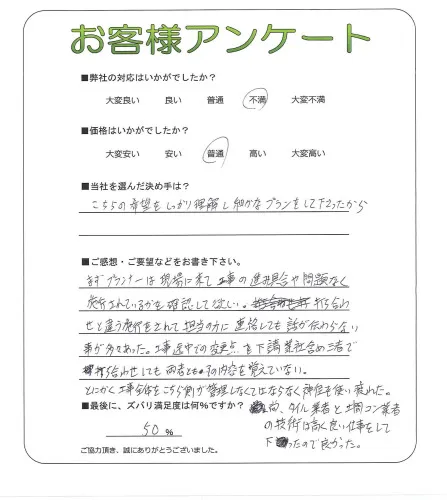 お客様アンケート
■弊社の対応はいかがでしたか?
大変良い 良い 普通 不満 大変不満
■価格はいかがでしたか?
大変安い 安い 普通 高い 大変高い
■当社を選んだ決め手は?
こちらの希望をしっかり理解し細かなプランをして下さったから
■ご感想・ご要望などをお書き下さい。
まずプランナーは現場に来て工事の進捗具合や問題なく
施行されているかを確認して欲しい。打ち合わ
せと違う施行をされて担当の方に連絡しても話が伝わらない
事が多々あった。工事途中での変更点を下請業社含め三者で
打ち合わせしても両者ともその内容を覚えていない。
とにかく工事全体をこちら側が管理しなくてはならなく神経を使い疲れた。
■最後に、ズバリ満足度は何%ですか?
50 %
尚、タイル業者と土間コン業者
の技術は高く良い仕事をして
下さったので良かった。
ご協力頂き、誠にありがとうございました。